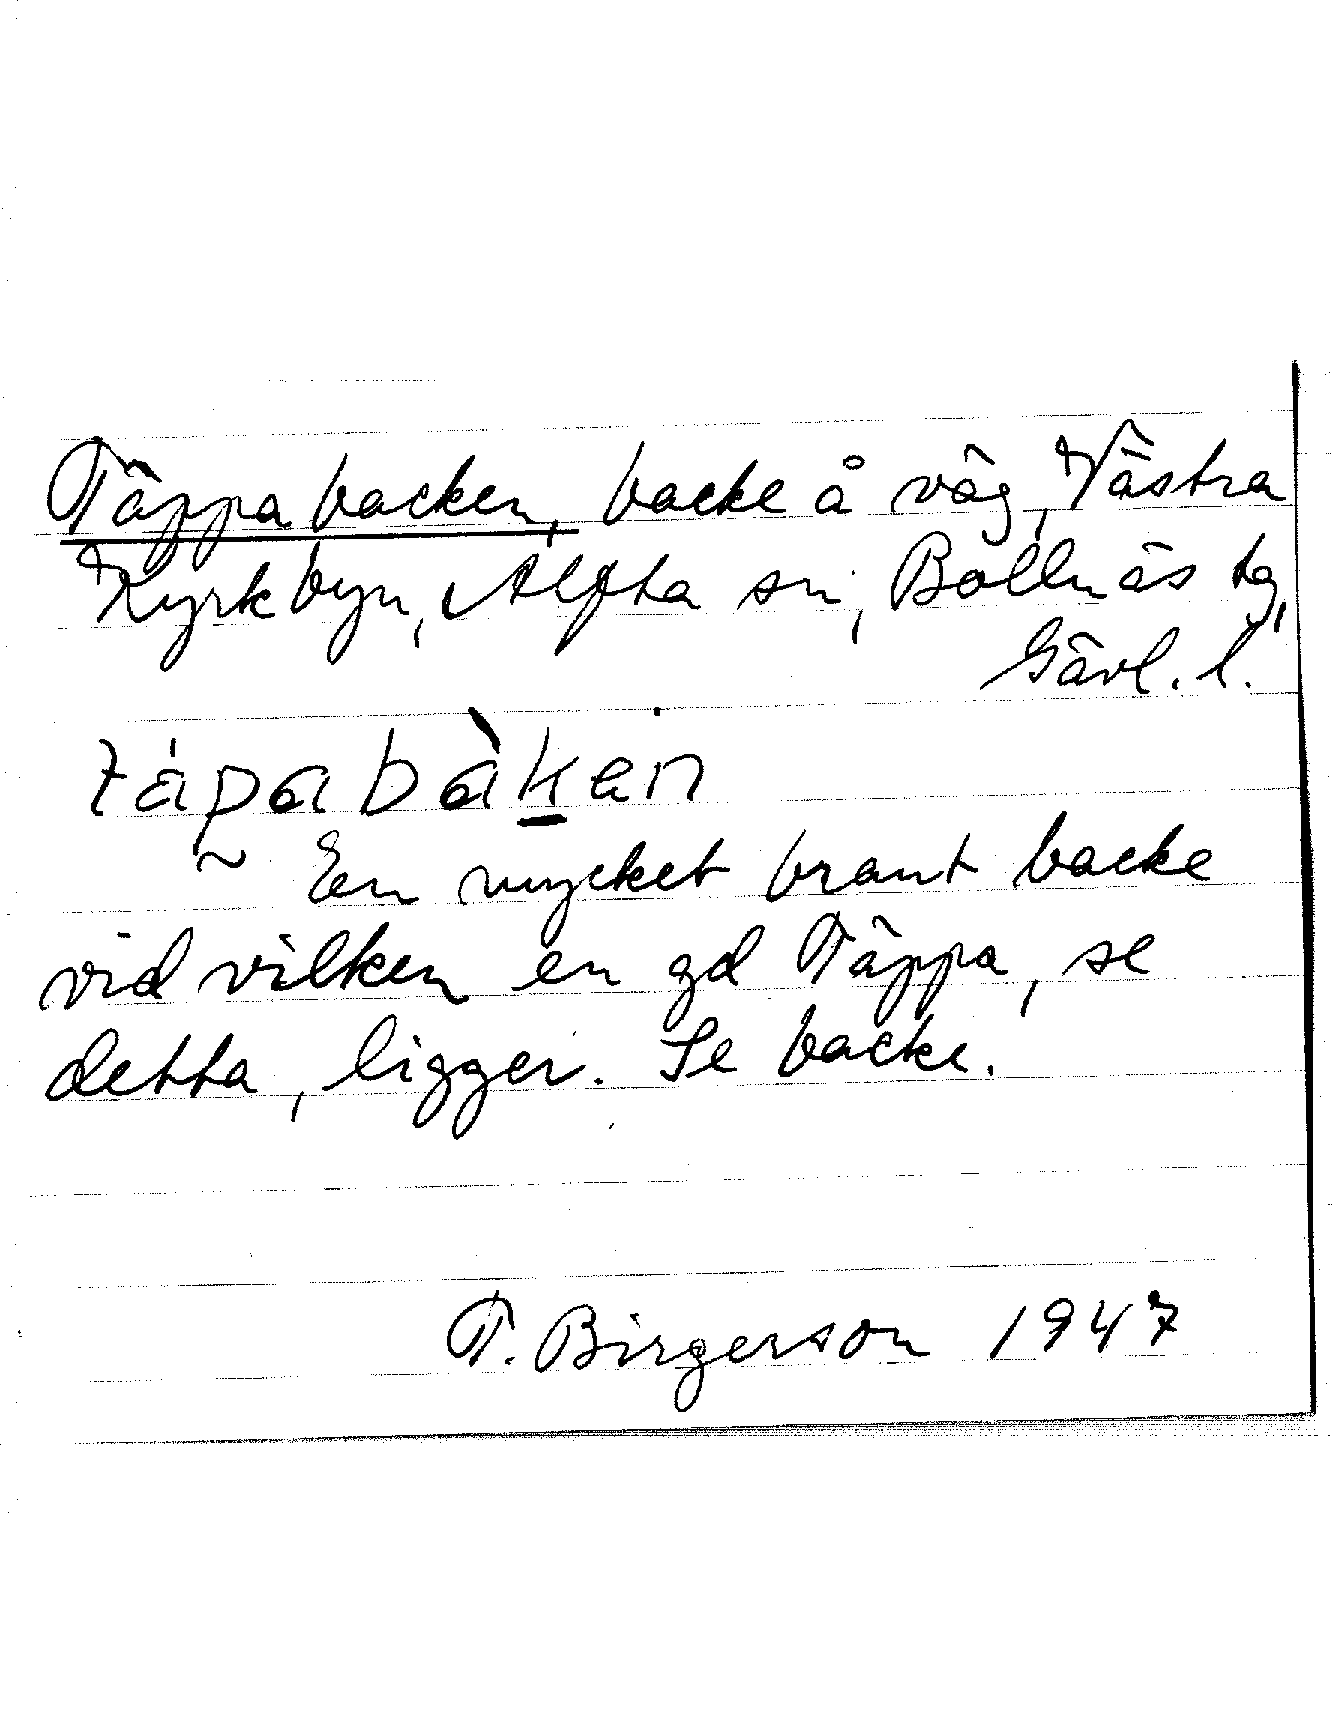 Täppabacken, backe å väg, Västra
Kyrkbyn, Alfta sn, Bollnäs tg,
Gävl. l.
tápabàken
En mycket brant backe
vid vilken en gd Täppa, se
detta, ligger. Se backe.
T. Birgerson 1947